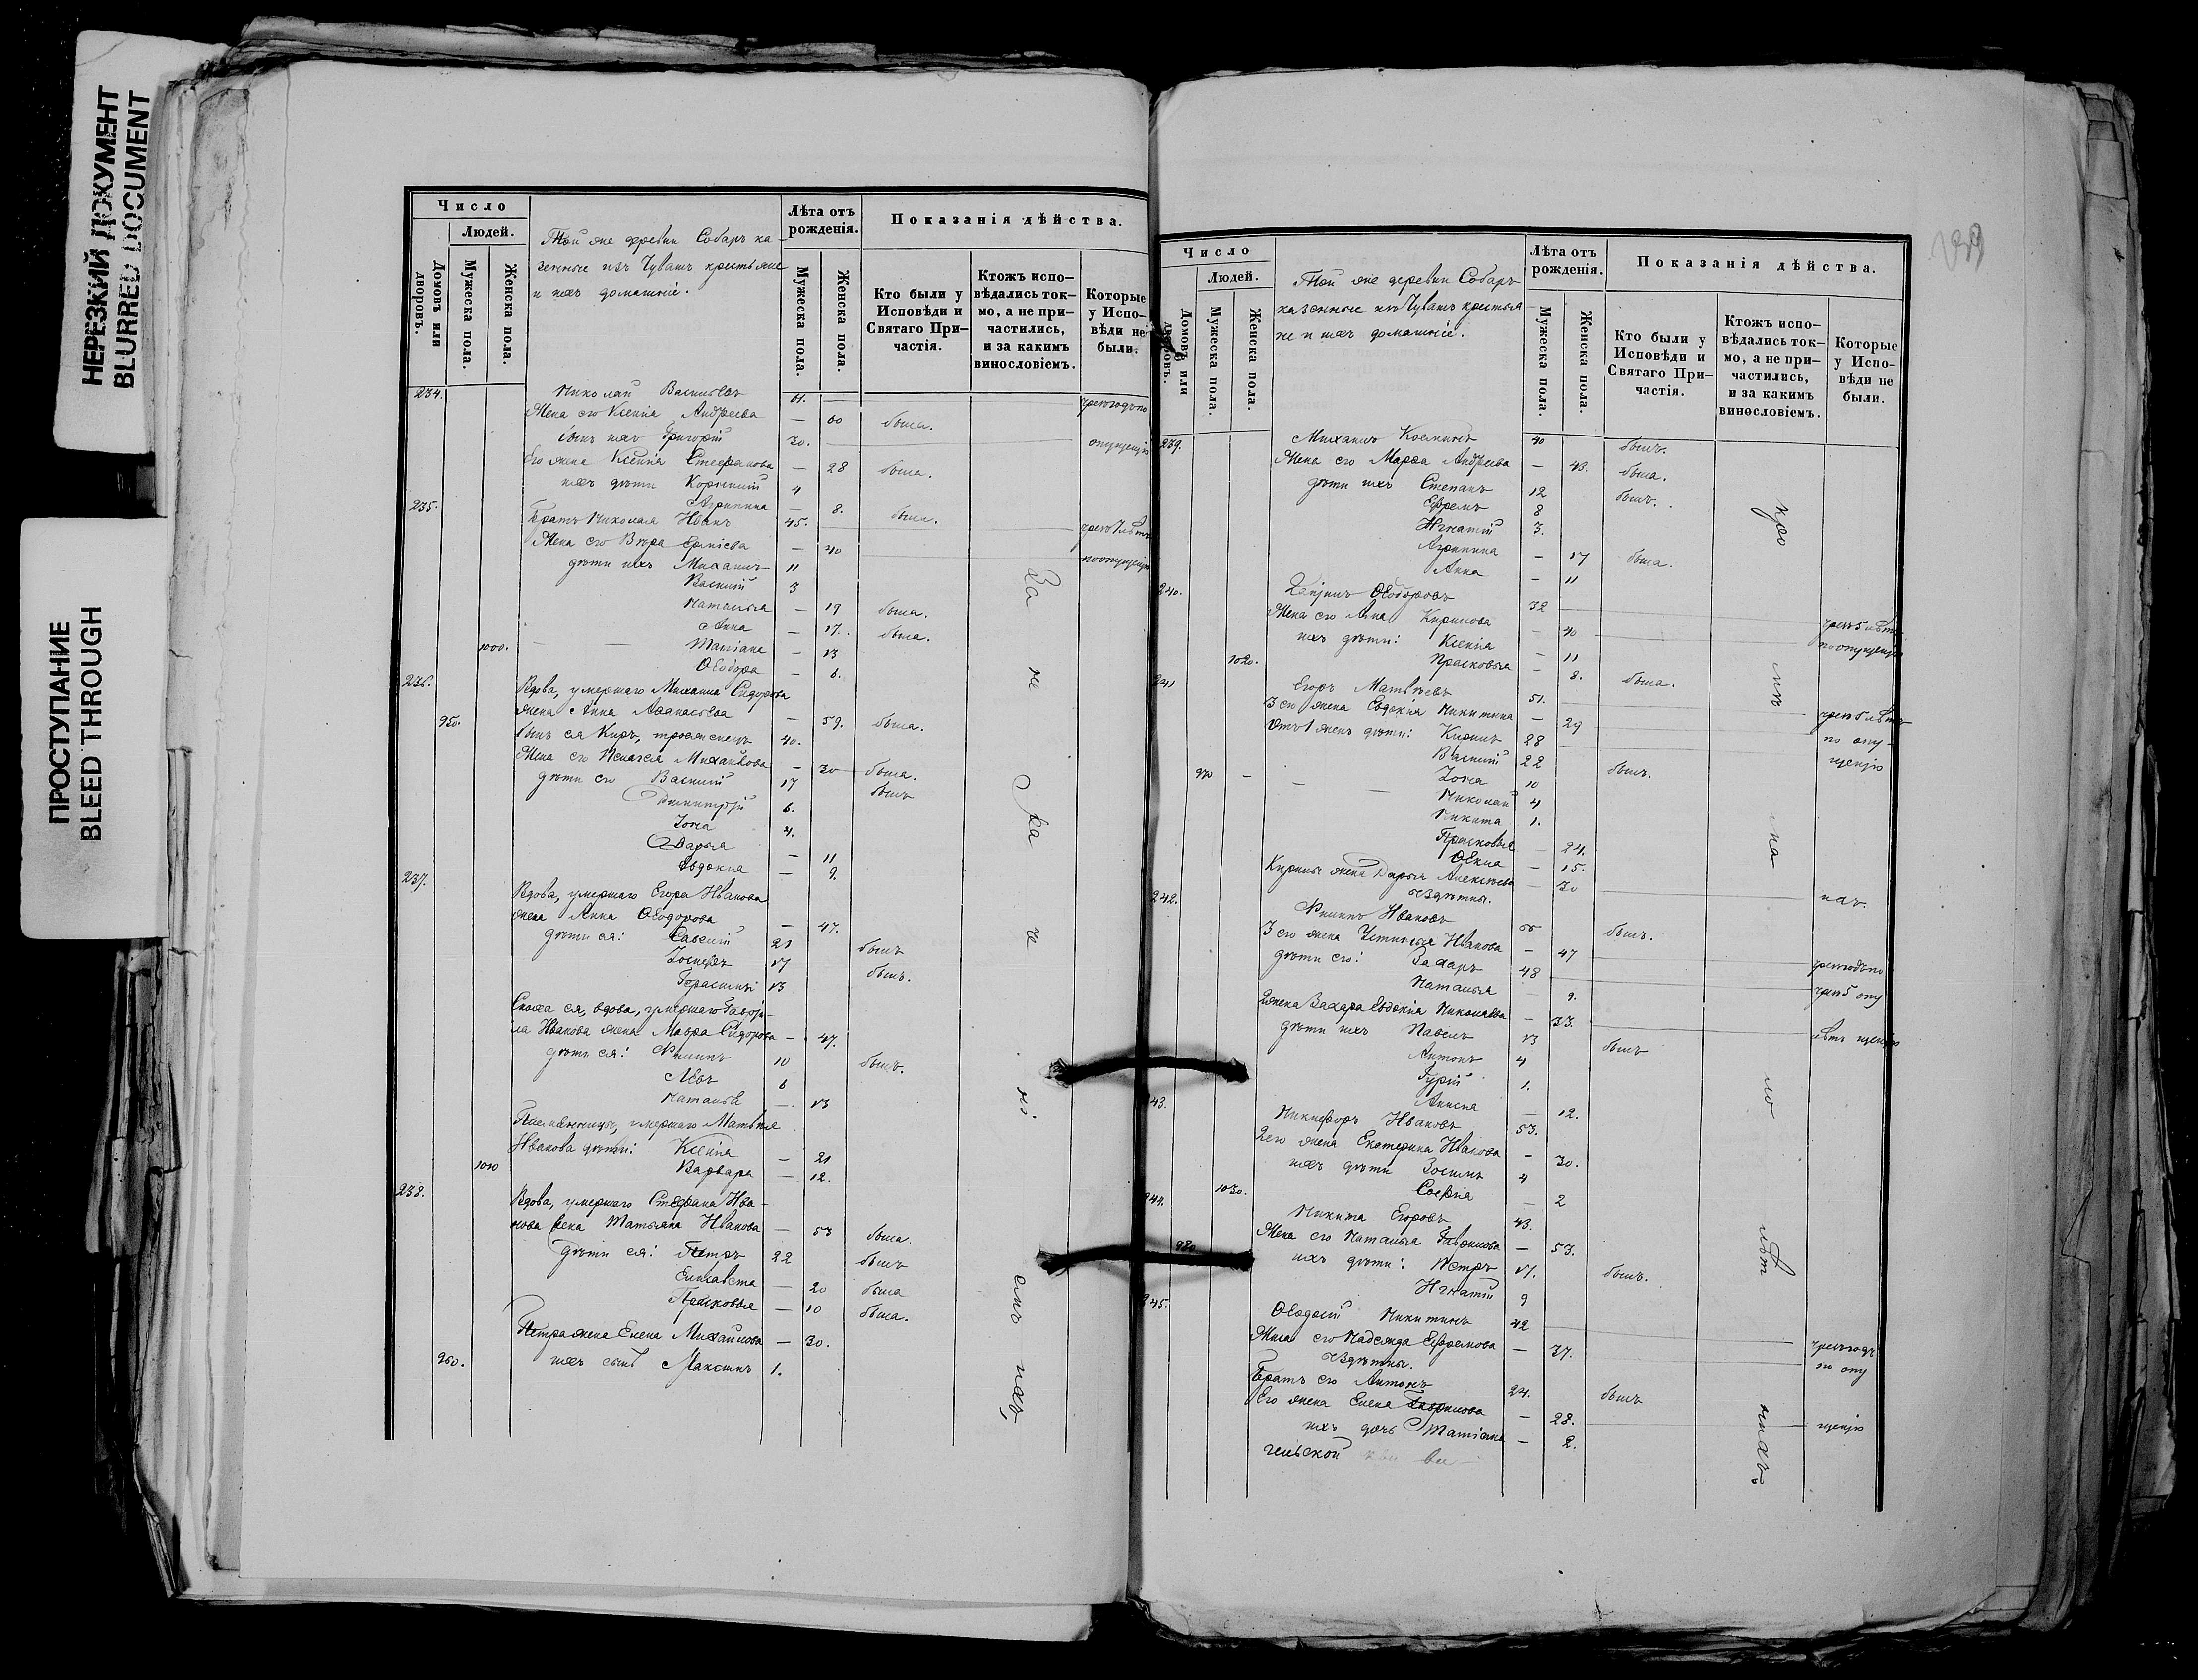 НЕРЕЗКИЙ ДОКУМЕНТ
BLURRED DOCUMENT
ПРОСТУПАНИЕ
BLEED THROUGH
Число
Людей.
Домовъ или дворовъ.
Мужеска пола.
Женска пола.
Той же деревни Собаръ ка-
зенные изъ Чувашъ крестьяне
и ихъ домашніе.
Лѣта отъ рожденія.
Мужеска пола.
Женска пола.
Показанія дѣйства.
Кто были у Исповѣди и Святаго При-частія.
Ктожъ испо-вѣдались ток-мо, а не при-частились, и за какимъ винословіемъ.
Которые у Испо-вѣди не были.
234. Николай Васильевъ 61. —
Жена его Ксенія Андреева — 60 была.
Сынъ ихъ Григорій 30. опущенію
Его жена Ксенія Стефанова — 28 была.
ихъ дѣти Корнилій 4
Агрипина — 8. была.
235. Братъ Николая Иванъ 45.
Жена его Вѣра Ермиева — 40 по опущенію
дѣти ихъ Михаилъ 11
Василій 3
Наталья — 19 была.
Анна — 17. была.
1000. — — Татіана — 13
Ѳеодора — 6.
236. Вдова, умершаго Михаила Сидорова
950. жена Анна Аѳанасьева — 59. была.
Сынъ ея Киръ, 40.
Жена его Пелагея Михайлова — 30 была.
дѣти его Василій 17 былъ
Димитрій 6.
Іона 4.
Дарья — 11
Евдокія — 9.
237. Вдова, умершаго Егора Иванова
жена Анна Ѳеодорова — 47.
дѣти ея: Савелій 21 былъ
Іосифъ 17 былъ.
Герасимъ 13
Сноха ея, вдова, умершаго Гаврі-
ла Иванова жена Мавра Сидорова — 47.
дѣти ея: Филипъ 10 былъ.
Левъ 6
Наталья — 13
Племянницы, умершаго Матвѣя
Иванова дѣти: Ксенія — 21
1010 Варвара — 12.
238. Вдова, умершаго Стефана Ива-
нова жена Татьяна Иванова — 53 была.
дѣти ея: Петръ 22 былъ
Елисавета — 20 была
Прасковья — 10 была.
Петра жена Елена Михайлова — 30.
960. ихъ сынъ Максимъ 1.
Число
Людей.
Домовъ или дворовъ.
Мужеска пола.
Женска пола.
Той же деревни Собаръ
казенные изъ Чувашъ крестья
не и ихъ домашніе.
Лѣта отъ рожденія.
Мужеска пола.
Женска пола.
Показанія дѣйства.
Кто были у Исповѣди и Святаго При-частія.
Ктожъ испо-вѣдались ток-мо, а не при-частились, и за какимъ винословіемъ.
Которые у Испо-вѣди не были.
239. Михаилъ Козминъ 40 былъ.
Жена его Марѳа Андреева — 43. была.
дѣти ихъ Степанъ 12 былъ.
Ефремъ 8
Игнатій 3.
Агрипина — 17 была.
Анна — 11
240. Ѳеодоровъ 32
Жена его Анна Кирилова — 40
ихъ дѣти: Ксенія — 11 по опущенію
1020. Прасковья — 8. была.
241 Егоръ Матвѣевъ 51.
3 его жена Евдокія Никитина — 29
Отъ 1 жены дѣти: Кирилъ 28 по опу-
Василій 22 былъ. щенію
970 — — — Іона 10
Николай 4
Никита 1.
Прасковья — 24.
Ѳекла — 15.
Кирилы жена Дарья Алексѣева — 30
бездѣтны.
242. Филипъ Ивановъ былъ.
3 его жена Устинья Иванова — 47
дѣти его: Захаръ 48
Наталья — 9.
2 жена Захара Евдокія Николаева — 33.
дѣти ихъ Павелъ 13 былъ
Антонъ 4
Гурій 1.
Анисія — 12.
243. Никифоръ Ивановъ 53.
2 его жена Екатерина Иванова — 30.
ихъ дѣти Зосимъ 4
1030. Софія — 2
244. Никита Егоровъ 43.
980 Жена его Наталья Гаврилова — 53.
ихъ дѣти: Петръ 17. былъ.
Игнатій 9
245. Ѳеодосій Никитинъ 42
Жена его Надежда Ефремова — 37.
бездѣтны. по опу
Братъ его Антонъ 24. былъ
Его жена Елена Гаврилова — 28. щенію
ихъ дочь Татіана — 2.